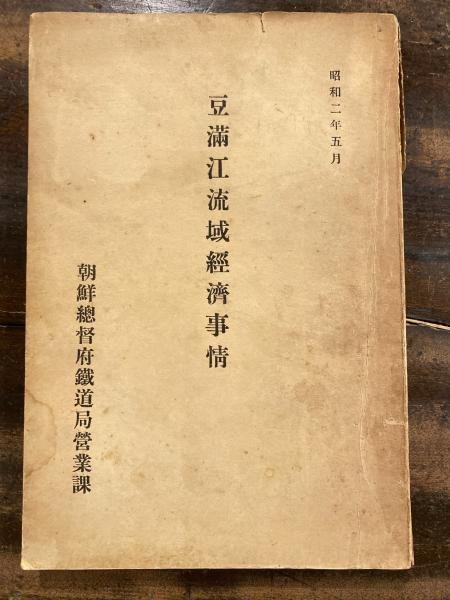 昭和二年五月
豆滿江流域經濟事情
朝鮮總督府鐵道局營業課